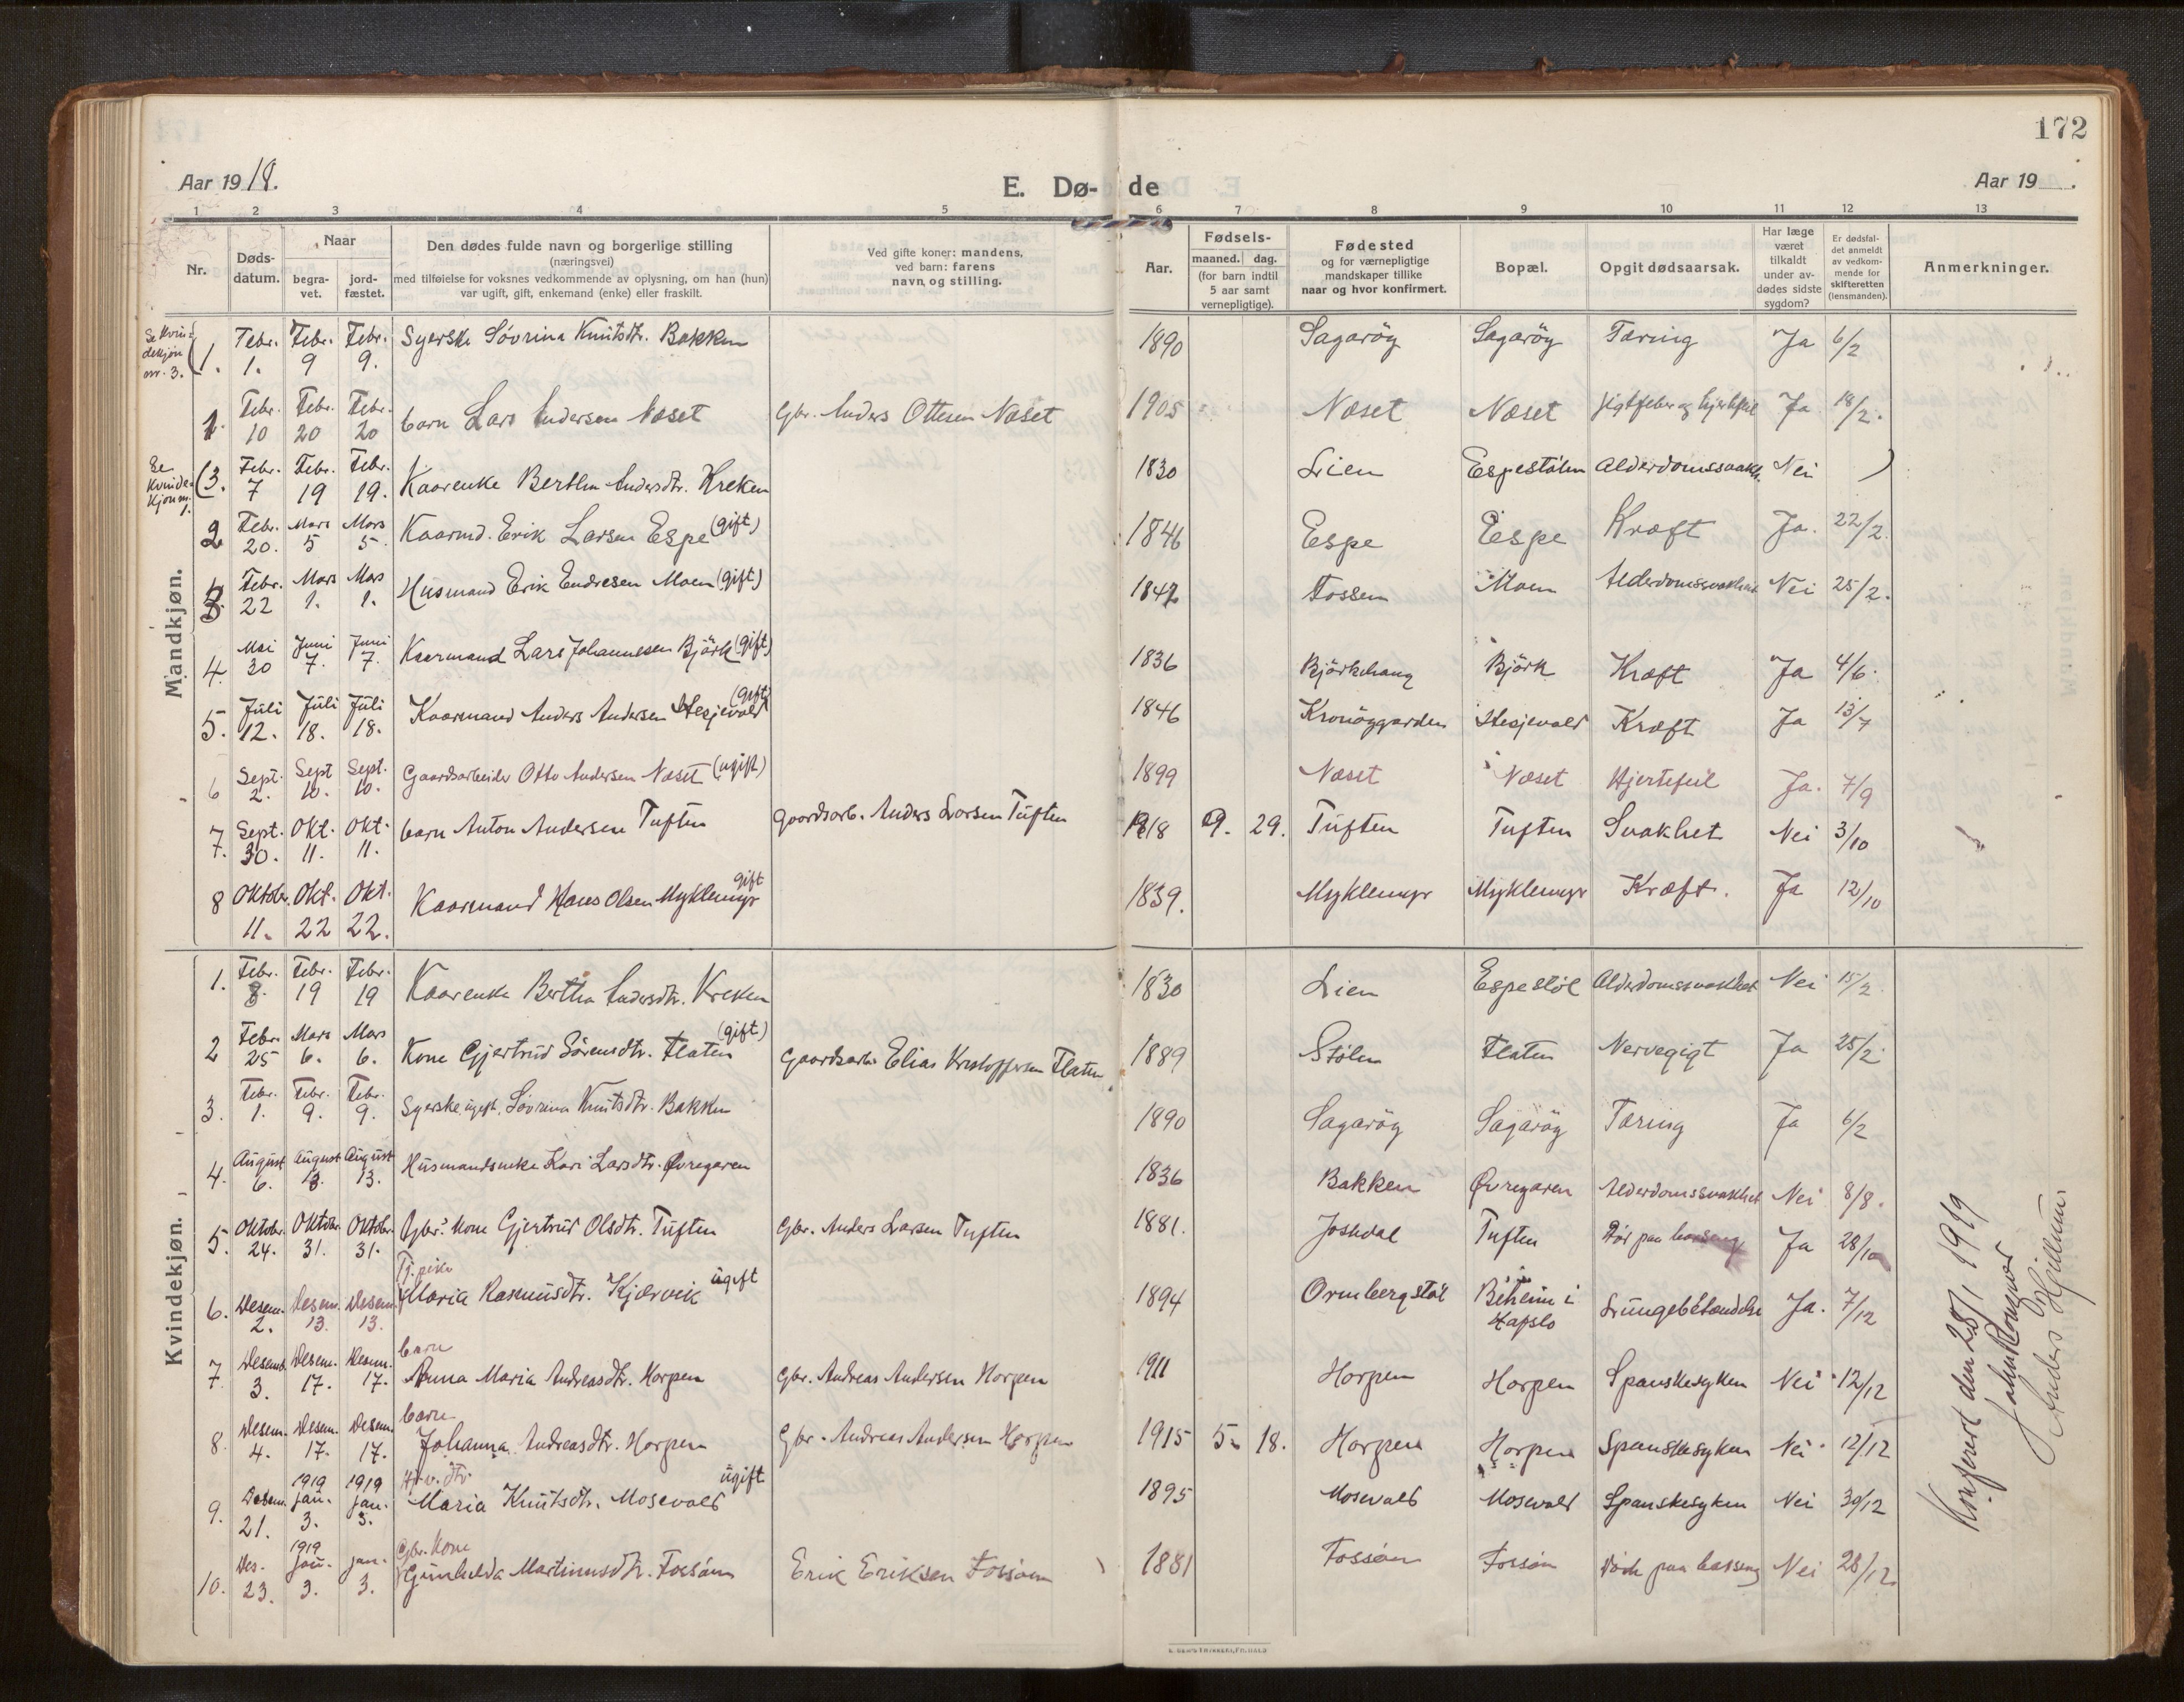 172
Aar 1918.
E. Dø-de
Aar 19
1 2 3 4 5 6 7 8 9 10 11 12 13
Nr.
Dødsdatum.
Naar
begravet.
jordfæstet.
Den dødes fulde navn og borgerlige stilling
(næringsvei)
med tilføielse for voksnes vedkommende av oplysning, om han (hun)
var ugift, gift, enkemand (enke) eller fraskilt.
Ved gifte koner: mandens,
ved barn: farens
navn og stilling.
Aar.
Fødsels-
maaned. dag.
(for barn indtil
5 aar samt
vernepligtige).
Fødested
og for værnepligtige
mandskaper tillike
naar og hvor konfirmert.
Bopæl.
Opgit dødsaarsak.
Har læge
været
tilkaldt
under av-
dødes sidste
sygdom?
Er dødsfal-
det anmeldt
av vedkom-
mende for
skifteretten
(lensmanden).
Anmerkninger.
Mandkjøn.
Se kvin-
dekjøn
nr. 3.
(1. Febr. 1. Febr. 9 Febr. 9. Syerske Sövrina Knutsdtr. Bakken 1890 Sagarög Sagarög Tæring Ja 6/2
1. Febr. 10 Febr. 20 Febr. 20 barn Lars Andersen Næset Gbr. Anders Ottesen Næset 1905 Næset Næset Gigtfeber og hjertefeil Ja 18/2.
Se
kvinde-
kjøn nr.
1.
(3. Febr. 7 Febr. 19 Febr. 19. Kaarenke Bertha Andersdtr. Kreken 1830 Lien Espestölen Alderdomssvakh. Nei )
2 Febr. 20. Mars 5 Mars 5. Kaarmd. Erik Larsen Espe (gift) 1846 Espe Espe Kræft Ja. 22/2.
3. Febr. 22 Mars 1. Mars 1. Husmand Erik Endresen Moen (gift) 1847 Fossen Moen Alderdomssvakhet Nei 25/2.
4. Mai 30 Juni 7. Juni 7. Kaarmand Lars Johannesen Björk (gift) 1836 Björkehaug Björk Kræft Ja 4/6.
5. Juli 12. Juli 18. Juli 18. Kaarmand Anders Andersen Hesjevold (gift) 1846 Kronöggarden Hesjevold Kræft Ja 13/7
6 Sept. 2. Sept 10. Sept. 10. Gaardsarbeider Otto Andersen Næset (ugift) 1899 Næset Næset Hjertefeil Ja. 7/9
7. Sept. 30. Okt. 11. Okt. 11. barn Anton Andersen Tuften gaardsarb. Anders Larsen Tuften 1918 9. 29. Tuften Tuften Svakhet Nei 3/10
8 Oktober. 11. Okt. 22 Okt. 22. Kaarmand Hans Olsen Myklemyr gift 1839. Myklemyr Myklemyr Kræft. Ja 12/10
Kvindekjøn.
1. Febr. 8. Febr. 19 Febr. 19 Kaarenke Bertha Andersdtr. Kreken 1830 Lien Espestöl Alderdomssvakhet Nei 15/2
2 Febr. 25 Mars 6. Mars 6. Kone Gjertrud Sörensdtr. Flaten (gift) Gaardsarb. Elias Kristoffersen Flaten 1889 Stölen Flaten Nervegigt Ja 25/2
3. Febr. 1. Febr. 9. Febr. 9. Syerske ugift. Sövrina Knutsdtr. Bakken 1890 Sagarög Sagarög Tæring Ja 6/2
4. August 6. August 13. August 13. Husmandsenke Kari Larsdtr. Øvregaren 1836 Bakken Øvregaren Alderdomssvakhet Nei 8/8.
5. Oktober. 24. Oktobr. 31. Oktober 31. Gbr. kone Gjertrud Olsdtr. Tuften Gbr. Anders Larsen Tuften 1881. Jostedal Tuften Död paa barseng Ja 28/10
6. Desem. 2. Desem. 13. Desem. 13. Tj. pike Maria Rasmusdtr. Kjærvik ugift 1894 Ormbergstöl Beheim i Hafslo Lungebetændelse Ja. 7/12
7 Desemb. 3. Desem. 17. Desem. 17. barn Anna Maria Andreasdtr. Horpen Gbr. Andreas Andersen Horpen 1911 Horpen Horpen Spanskesyken Nei 12/12
8. Desem. 4. Desem. 17. Desem. 17. barn Johanna Andreasdtr. Horpen Gbr. Andreas Andersen Horpen 1915 5. 18. Horpen Horpen Spanskesyken Nei. 12/12
9. Desem. 21. 1919 jan. 3. 1919 jan. 3. dtr. Maria Knutsdtr. Mosevold ugift 1895 Mosevold Mosevold Spanskesyken Nei 30/12
10. Des. 23. 1919 jan. 3. jan. 3. Gbr. kone Gunhilda Martinusdtr. Fossöen Erik Eriksen Fossöen 1881 Fossöen Fossöen Död paa barseng Nei 28/12.
Konferert den 28/1 1919
Anders Hjellum